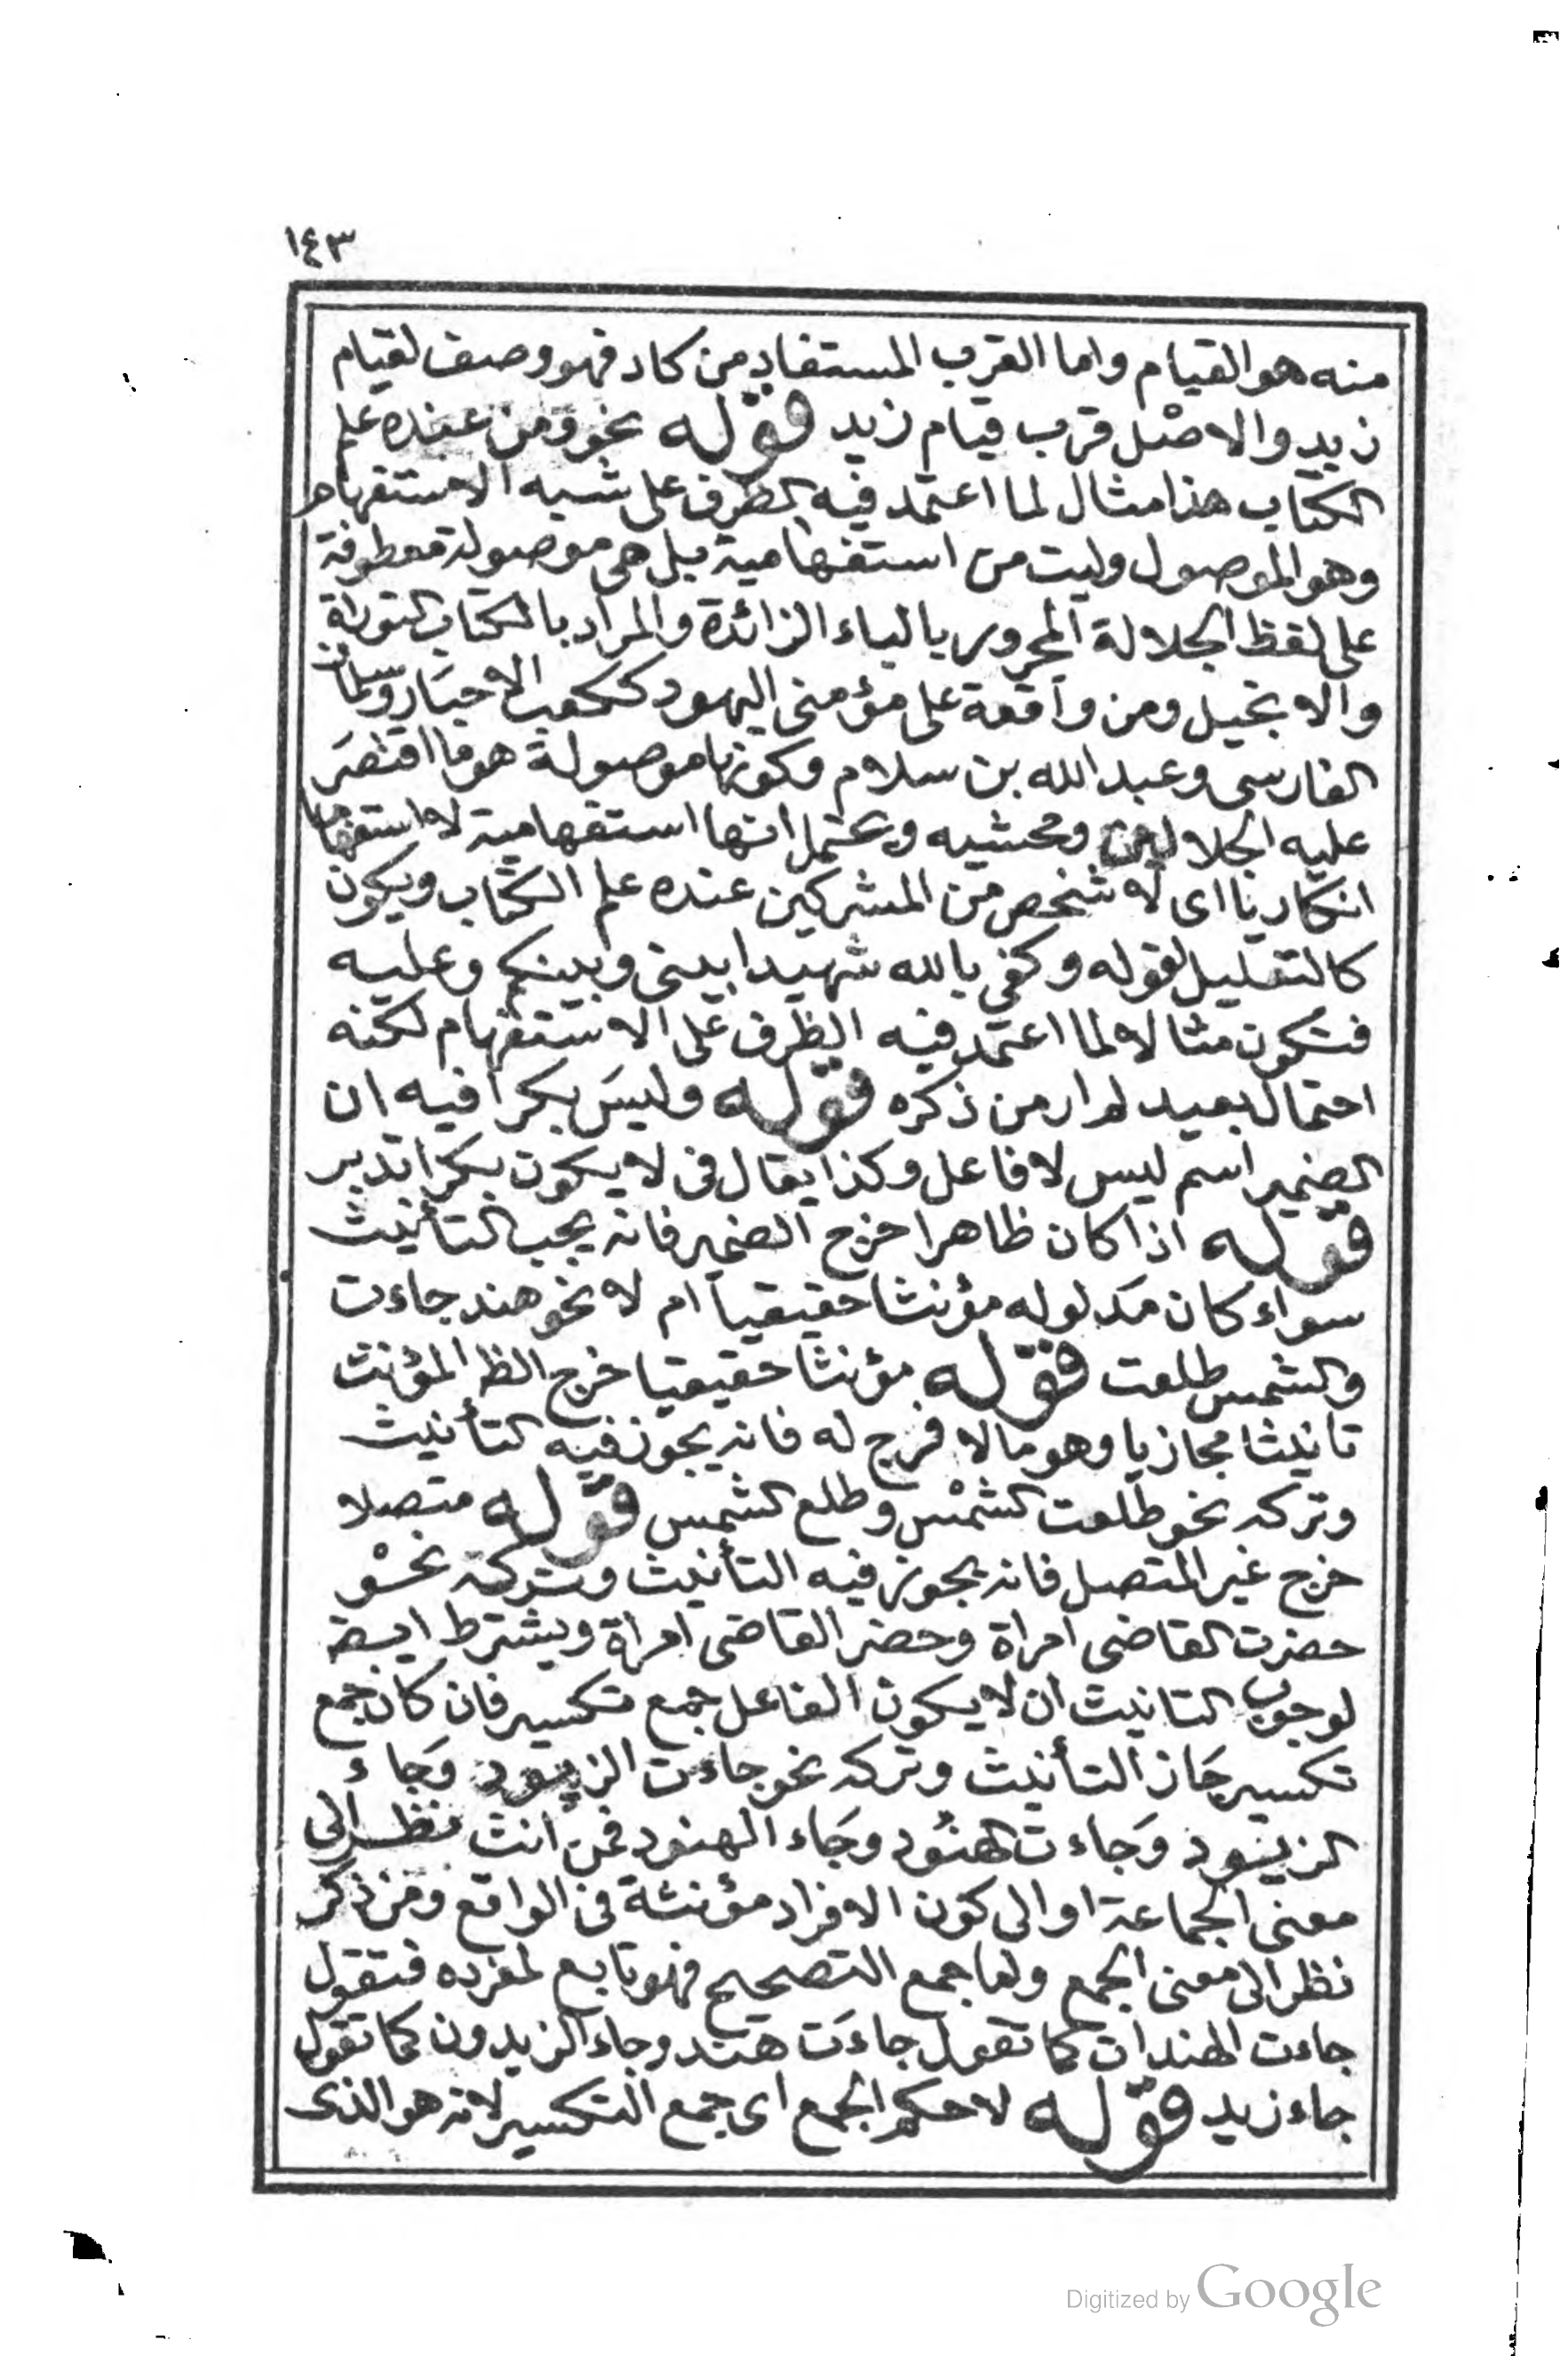 ١٤٣
منه هو القيام واما القرب المستفاد من كاد فهو وصف لقيام
زيد والاصْل قرب قيام زيد قوّله نحو ومن عنده علم
الكتاب هذا مثال لما اعتمد فيه الظرف على شبه الاستفهام
وهو الموصول وليت من استفهامية بل هى موصولة معطوفة
على لفظ الجلالة المجرور بالباء الزائدة والمراد بالكتاب التوراة
والانجيل ومن واقعة على مؤمنى اليهود ككعب الاحبَار وسلمان
الفارسى وعبد الله بن سلام وكونها موصولة هو ما اقتصَر
عليه الجلالين ومحشيه ويحتمل انها استفهامية لاستفهاما
انكاريا اى لا شخص من المشركين عنده علم الكتاب ويكون
كالتعليل لقوله وكفى بالله شهيدا بينى وبينكم وعليه
فتكون مثالا لما اعتمد فيه الظرف على الاستفهام لكنه
احتمال بعيد لم ار من ذكره قوّله وليسَ بكرا فيه ان
الضمير اسم ليس لا فاعل وكذا يقال فى لا يكون بكرا تدبر
قوله اذا كان ظاهرا خرج الضمير فانه يجب التأنيث
سواء كان مَدلوله مؤنثا حقيقياً ام لا نحو هند جاءت
والشمس طلعت قوّله مؤنثا حقيقيا خرج الظا المؤنث
تانيثا مجازيا وهو مالا فرج له فانه يجوز فيه التأنيث
وتركه نحو طلعت الشمْس وطلع الشمس قوّله متصلا
خرج غير المتصل فانه يجوز فيه التأنيث وتركه نحْو
حضرت القاضى امراة وحضر القاضى امراة ويشترط ايضا
لوجوب التانيث ان لا يكون الفاعل جمع تكسير فان كان جمع
تكسير جَاز التأنيث وتركه نحو جاءت الزيود وَجاء
الزيود وَجاءت الهنُود وجَاء الهنود فمن أنث نظر الى
معنى الجماعة او الى كون الافراد مؤنثة فى الواقع ومن ذكر
نظر الى معنى الجمع واما جمع التصحيح فهو تابع لمفرده فتقول
جاءت الهندات كما تقول جاءَت هند وجاء الزيدون كما تقول
جاء زيد قوّله لا حكم الجمع اى جمع التكسير لانه هو الذى
Digitized by Google